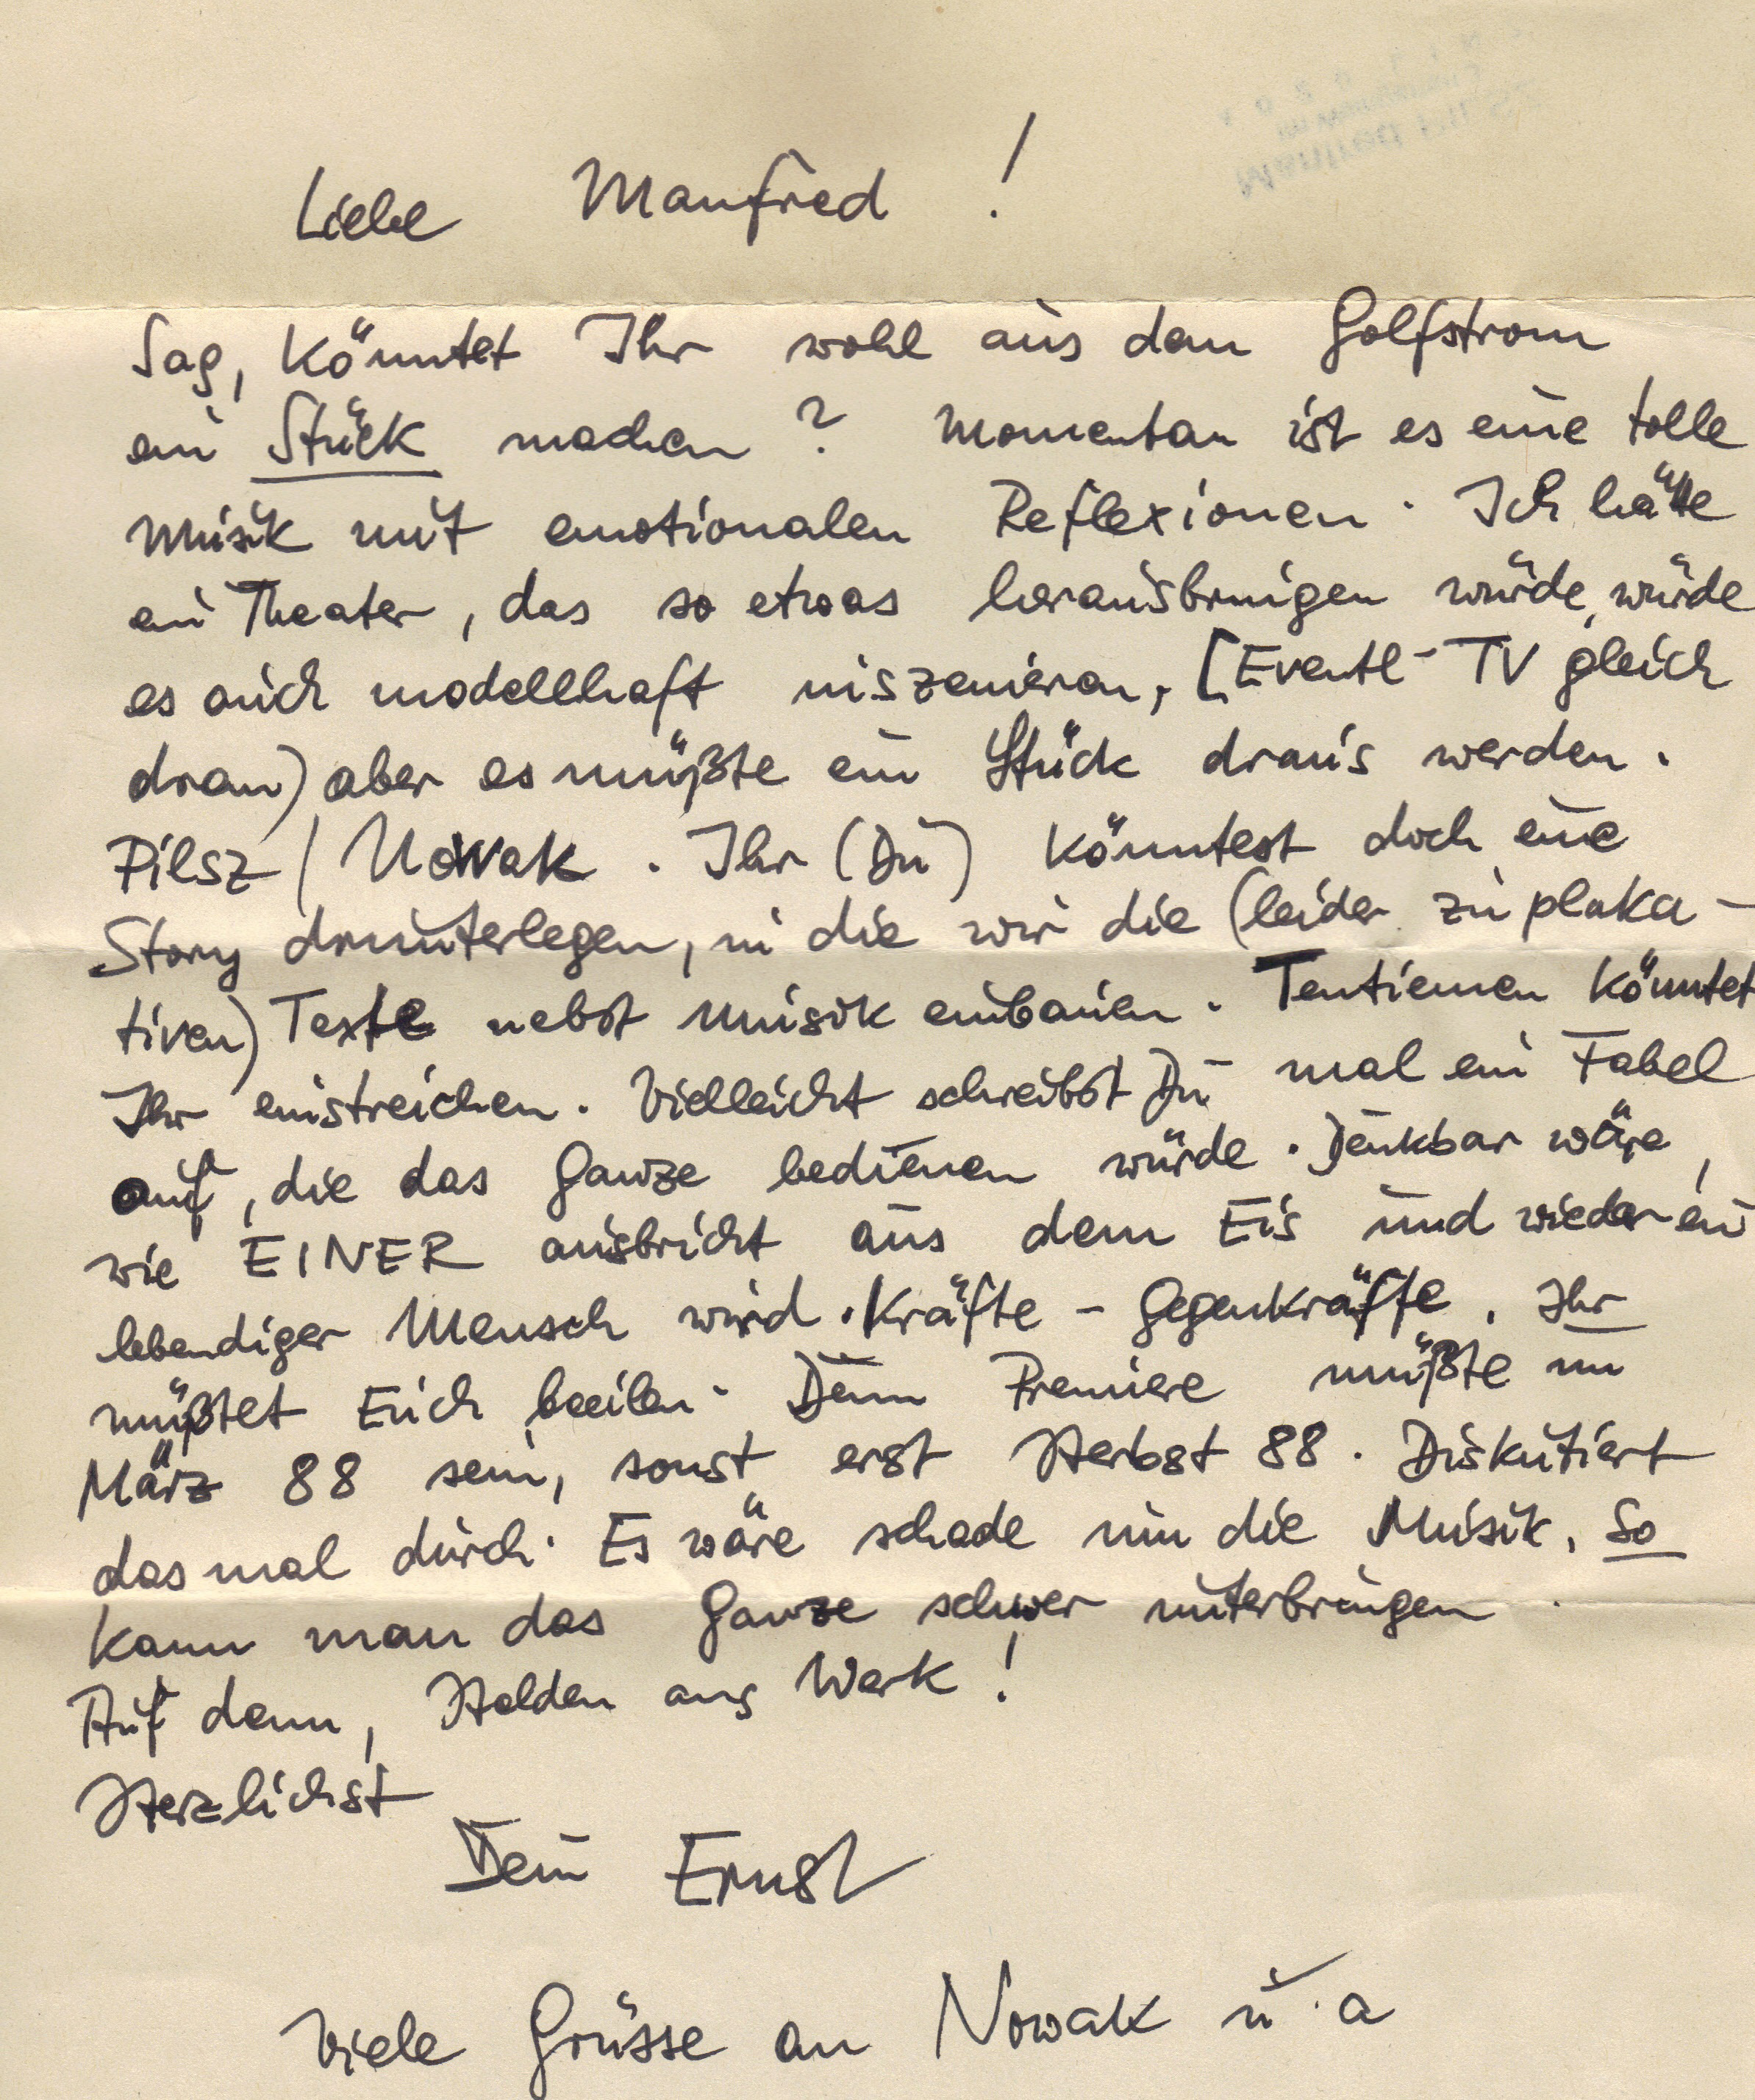 Liebe Manfred !
Sag, könntet Ihr wohl aus dem Golfstrom
ein Stück machen ? Momentan ist es eine tolle
Musik mit emotionalen Reflexionen. Ich hätte
ein Theater, das so etwas herausbringen würde, würde
es auch modellhaft inszenieren, [Eventl-TV gleich
dran) aber es müßte ein Stück draus werden.
Pilsz / Nowak. Ihr (Du) könntest doch eine
Story drunterlegen, in die wir die (leider zu plaka-
tiven) Texte nebst Musik einbauen. Tantiemen könntet
Ihr einstreichen. Vielleicht schreibst Du mal ein Fabel
auf, die das Ganze bedienen würde. Denkbar wäre,
wie EINER ausbricht aus dem Eis und wieder ein
lebendiger Mensch wird. Kräfte - Gegenkräfte. Ihr
müßtet Euch beeilen. Denn Premiere müßte im
März 88 sein, sonst erst Herbst 88. Diskutiert
das mal durch. Es wäre schade um die Musik. So
kann man das Ganze schwer unterbringen.
Auf denn, Helden ans Werk !
Herzlichst
Dein Ernst
Viele Grüsse an Nowak u. a